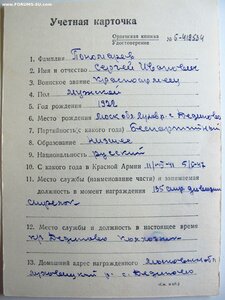 www.FORUMS-SU.com
Учетная карточка
Орденская книжка
Удостоверение
№ Б-418534
1. Фамилия Пономарев
2. Имя и отчество Сергей Иванович
3. Воинское звание Красноармеец
4. Пол Мужской
5. Год рождения 1922
6. Место рождения с. Дединово
7. Партийность (с какого года) Беспартийный
8. Образование низшее
9. Национальность русский
10. С какого года в Красной Армии
11. Место службы (наименование части) и занимаемая
должность в момент награждения 135 стр дивизии
стрелок
12. Место службы и должность в настоящее время
Дединово Колхозник
13. Домашний адрес награжденного Московской
Луховицкий с. Дединово
(См. н об.)